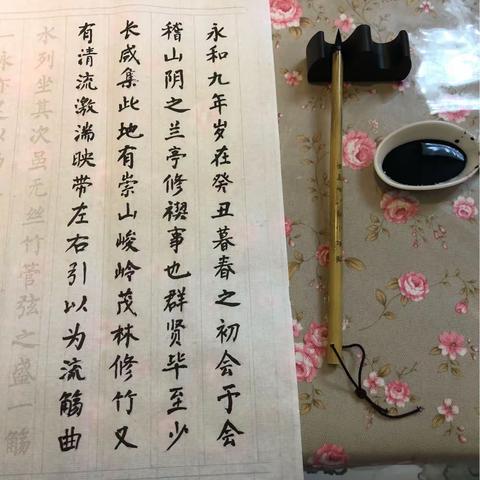 永和九年岁在癸丑暮春之初会于会
稽山阴之兰亭修禊事也群贤毕至少
长咸集此地有崇山峻岭茂林修竹又
有清流激湍映带左右引以为流觞曲
水列坐其次虽无丝竹管弦之盛一觞